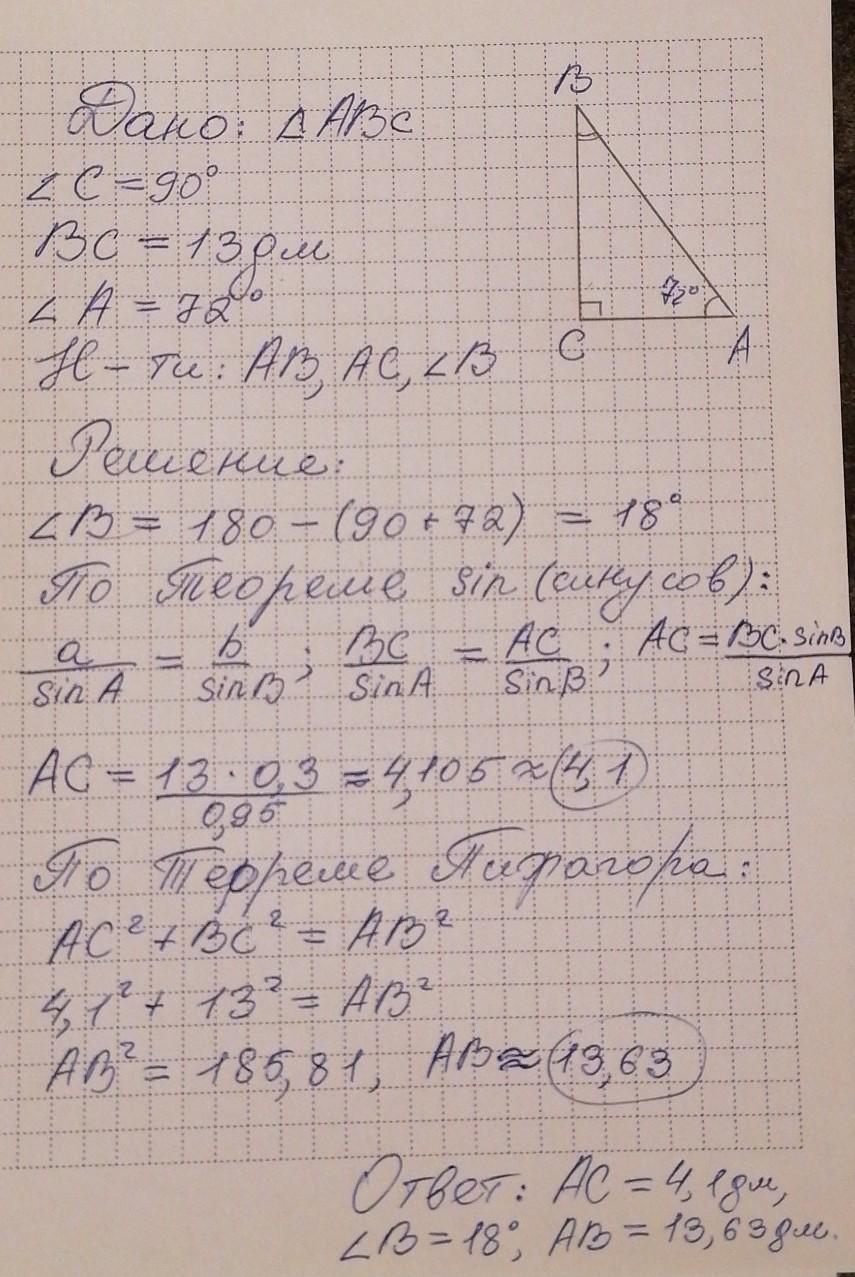 B
Дано: △ABC
∠C = 90°
BC = 13 дм
∠A = 72°
72°
C
A
Н-ти: AB, AC, ∠B
Решение:
∠B = 180 - (90 + 72) = 18°
По Теореме sin (синусов):
a/sin A = b/sin B; BC/sin A = AC/sin B; AC = BC·sin B/sin A
AC = 13 · 0,3/0,95 ≈ 4,105 ≈ 4,1
По Теореме Пифагора:
AC² + BC² = AB²
4,1² + 13² = AB²
AB² = 185,81, AB ≈ 13,63
Ответ: AC = 4,1 дм,
∠B = 18°, AB = 13,63 дм.